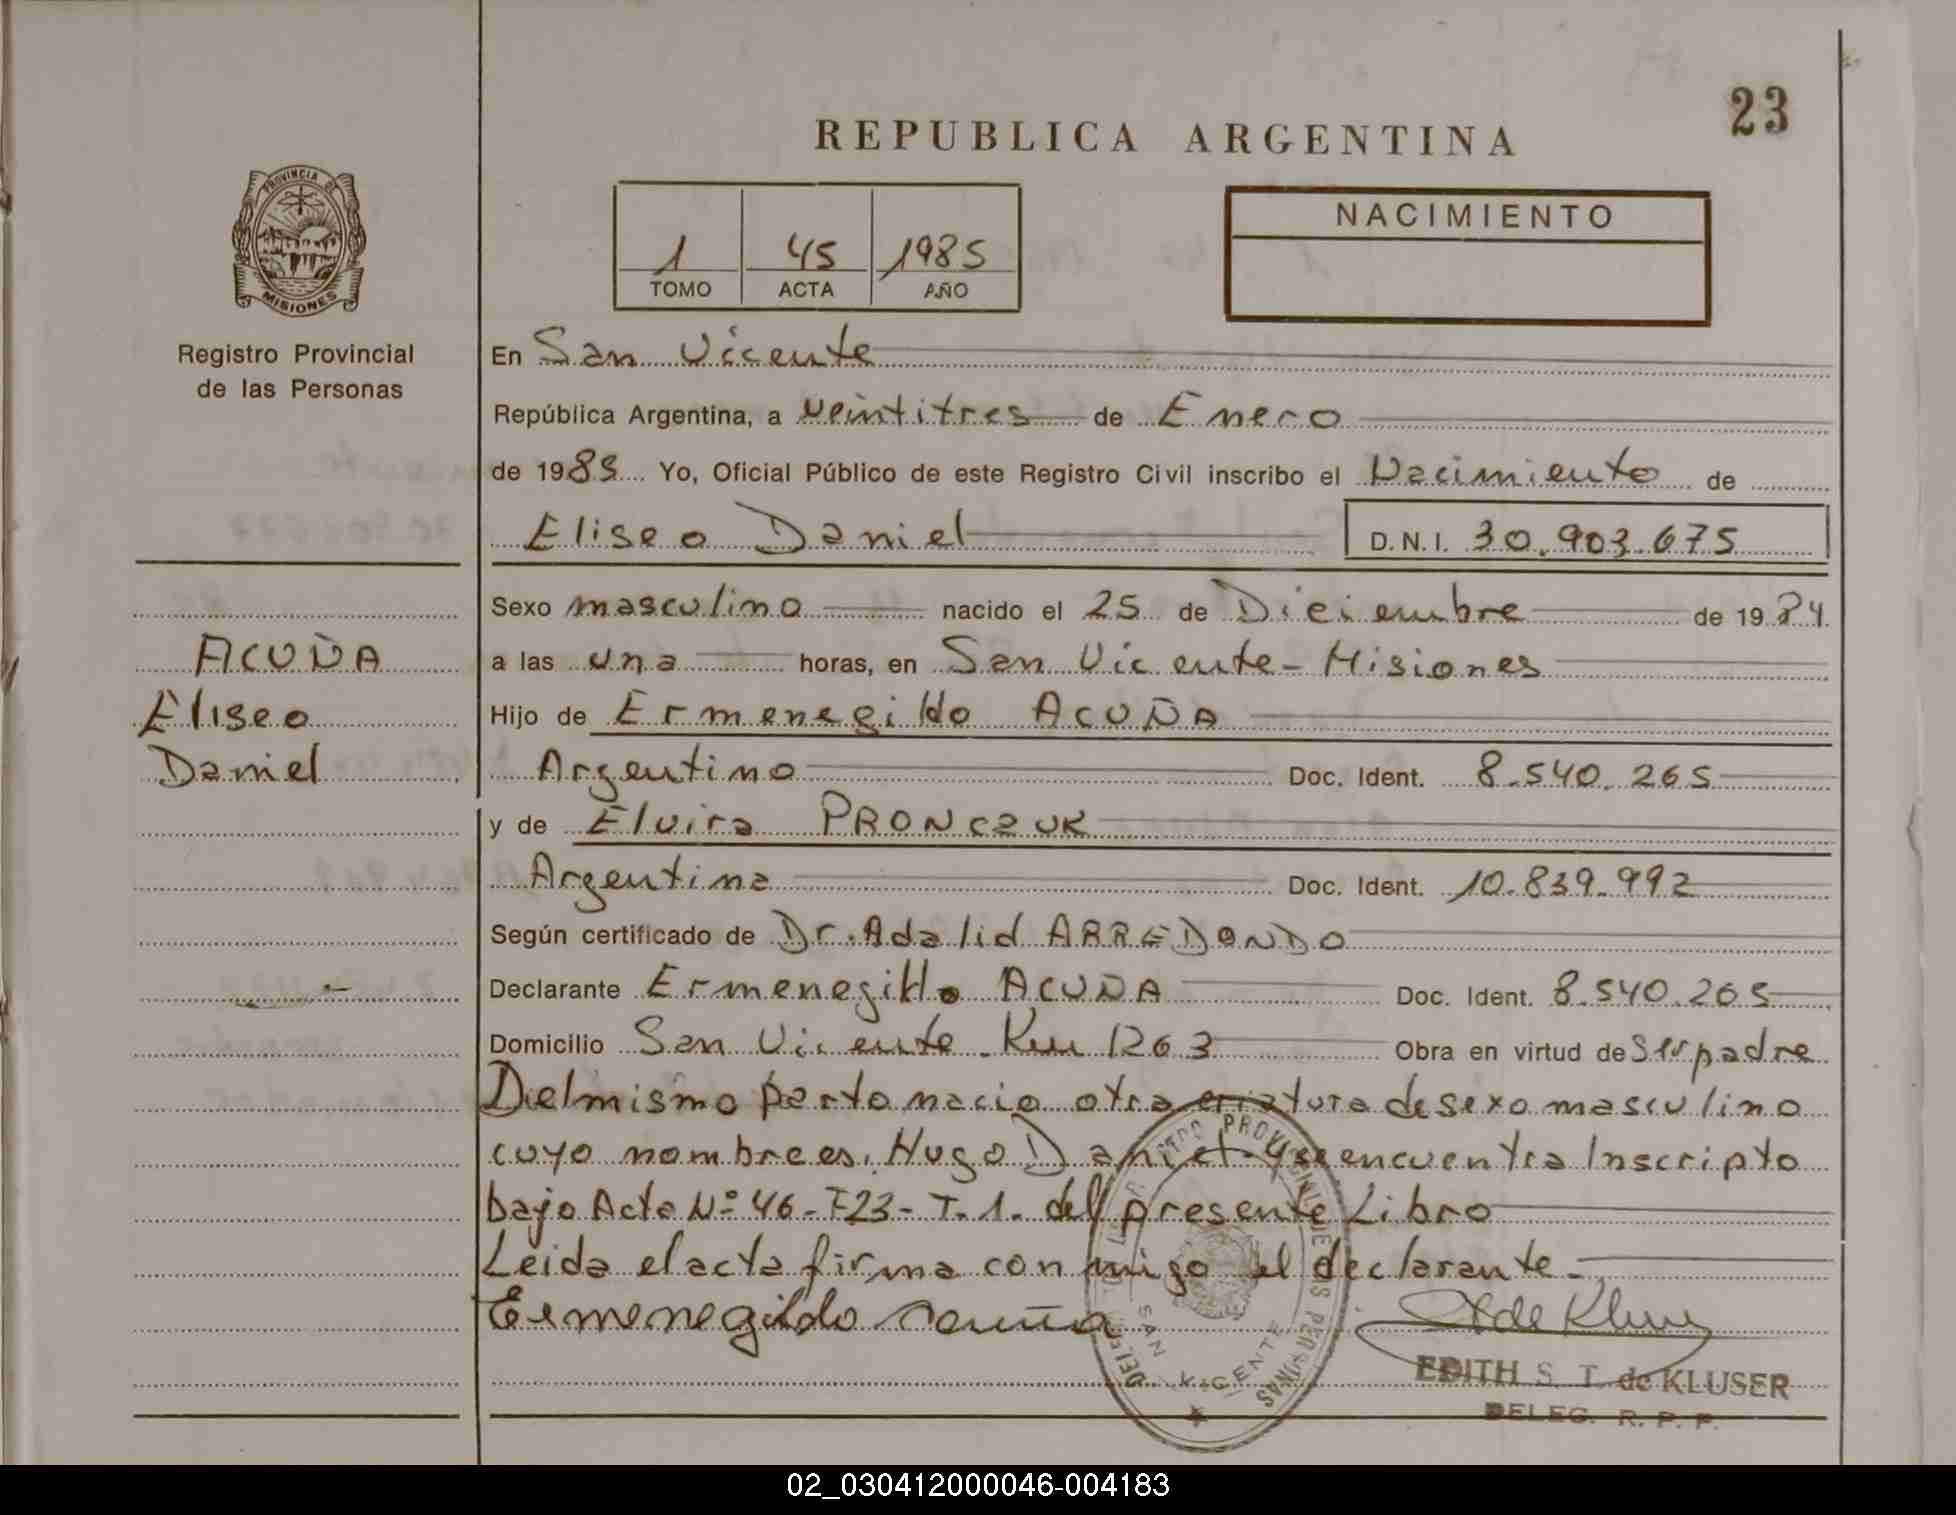 23
REPUBLICA ARGENTINA
PROVINCIA DE
MISIONES
Registro Provincial
de las Personas
1 45 1985
TOMO ACTA AÑO
NACIMIENTO
En San Vicente
República Argentina, a veintitres de Enero
de 1985 Yo, Oficial Público de este Registro Civil inscribo el Nacimiento de
Eliseo Daniel D.N.I. 30.903.675
ACUÑA
Eliseo
Daniel
Sexo masculino nacido el 25 de Diciembre de 1984
a las una horas, en San Vicente - Misiones
Hijo de Ermenegildo ACUÑA
Argentino Doc. Ident. 8.540.265
y de Elvira PRONCZUK
Argentina Doc. Ident. 10.839.992
Según certificado de Dr. Adalid ARREDONDO
Declarante Ermenegildo ACUÑA Doc. Ident. 8.540.265
Domicilio San Vicente - Km 1263 Obra en virtud de ser padre
Del mismo parto nacio otra criatura de sexo masculino
cuyo nombre es, Hugo Daniel y se encuentra Inscripto
bajo Acta Nº 46 - F23 - T. 1. del presente Libro
Leida el acta firma con migo el declarante.
Ermenegildo Acuña
SAN VICENTE
EDITH S. T. de KLUSER
DELEG. R. P. P.
02_030412000046-004183